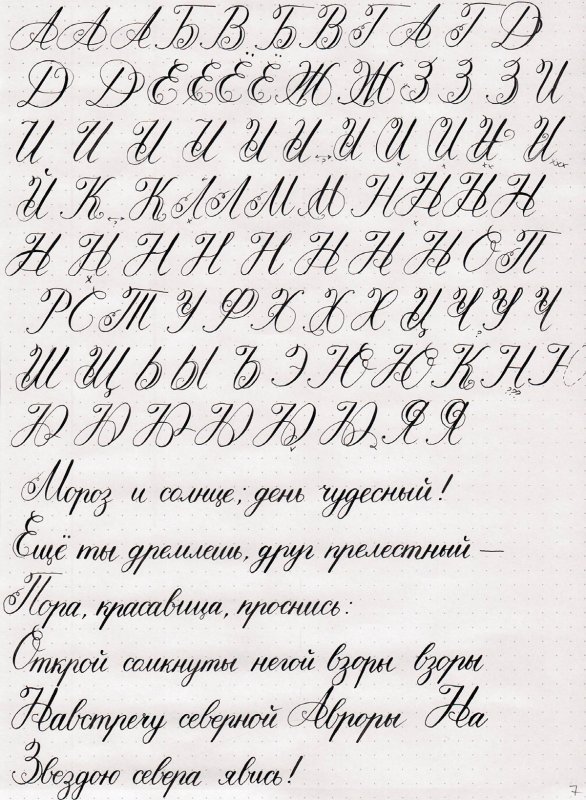 А А А Б В Б В Г А Г Д
Д Д Е Е Ё Ё Ж Ж З З З И
И И И И И И И И И И И
Й К К Л Л М М Н Н Н Н
Н Н Н Н Н Н Н Н О П
Р С Т У Ф Х Х Х Ц Ч У Ч
Ш Щ Ь Ы Ъ Э Ю Ю К Н Н
Я Я
Мороз и солнце; день чудесный!
Ещё ты дремлешь, друг прелестный —
Пора, красавица, проснись:
Открой сомкнуты негой взоры взоры
Навстречу северной Авроры На
Звездою севера явись!
7